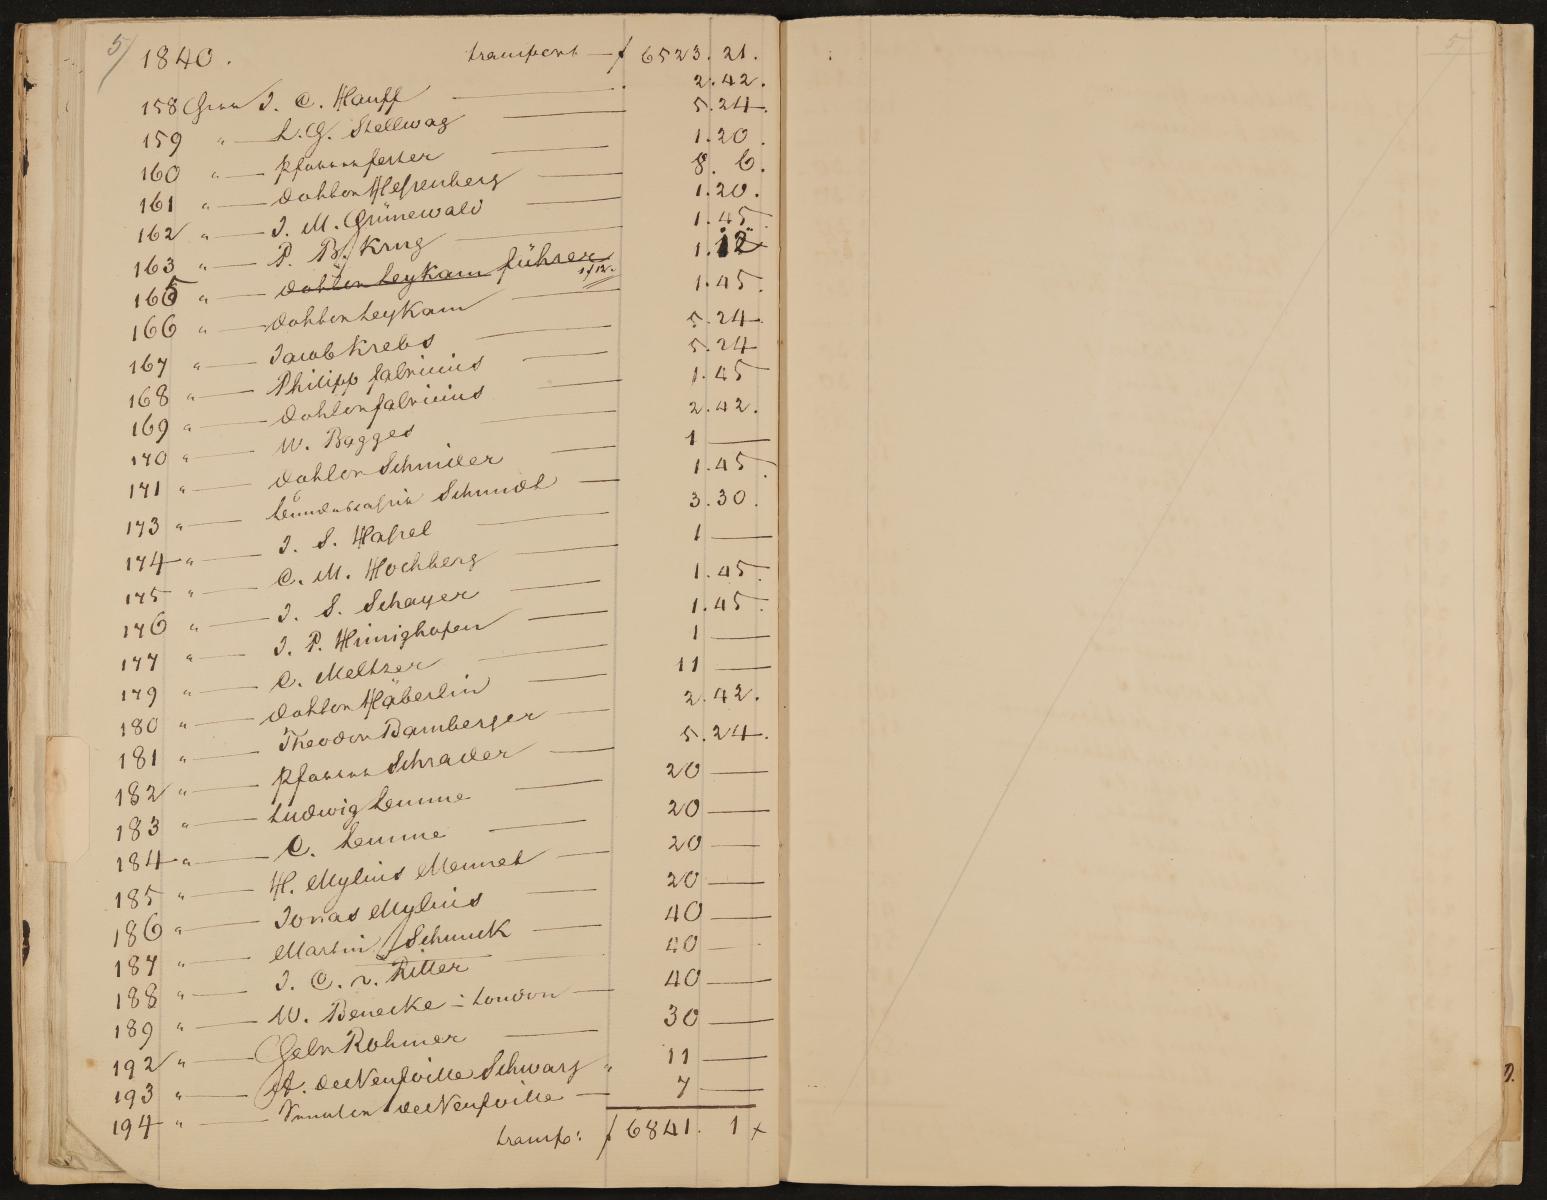 5/
1840. transport — f 6523. 21.
158 Herr J. C. Hauff — 2.42.
159 " — L. G. Stellwag — 5.24.
160 " — Pfarrer fester — 1.20.
161 " — Doktor Hessenberg — 8. 6.
162 " — J. M. Grünewald — 1.20.
163 " — P. B. Krug — 1.45
165 " — Doktor Leykam führer 1f12. 1.12
166 " — Doktor Leykam — 1.45.
167 " — Jacob Krebs — 5.24
168 " — Philipp fabricius — 5.24
169 " — Doktor fabricius — 1.45
170 " — W. Bagges — 2.42.
171 " — Doktor Schmidt — 1 —
173 " — Schmidt — 1.45.
174 " — J. S. Hassel — 3.30.
175 " — C. M. Hochberg — 1 —
176 " — J. S. Schayer — 1.45.
177 " — J. P. Hünighofen — 1.45.
179 " — C. Meltzer — 1 —
180 " — Doktor Häberlin — 11 —
181 " — Theodor Bamberger — 2.42.
182 " — Pfarrer Schrader — 5.24.
183 " — Ludwig Lemme — 20 —
184 " — C. Lemme — 20 —
185 " — H. Mylius Mennet — 20 —
186 " — Jonas Mylius — 20 —
187 " — Martin Schmuck — 40 —
188 " — J. C. v. Ritter — 40 —
189 " — W. Benecke : London — 40 —
192 " — Gebr Rohmer — 30 —
193 " — de Neufville Schwarz " 11 —
194 " — de Neufville — 7 —
transp: f 6841. 1 x
5